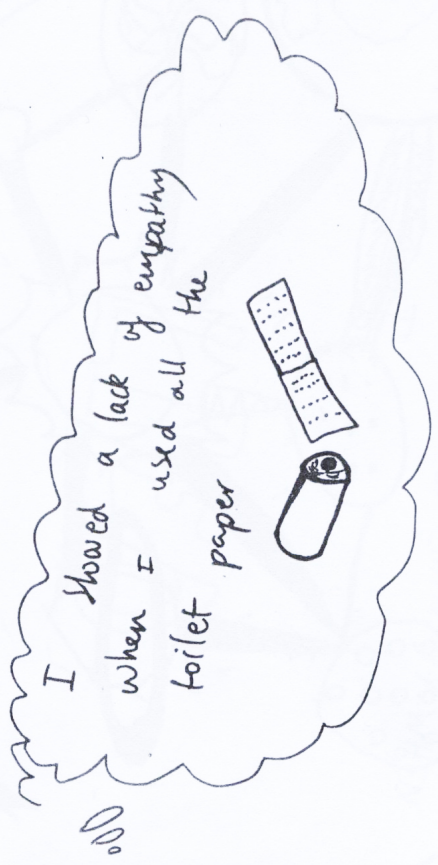 I showed a lack of empathy
when I used all the
toilet paper